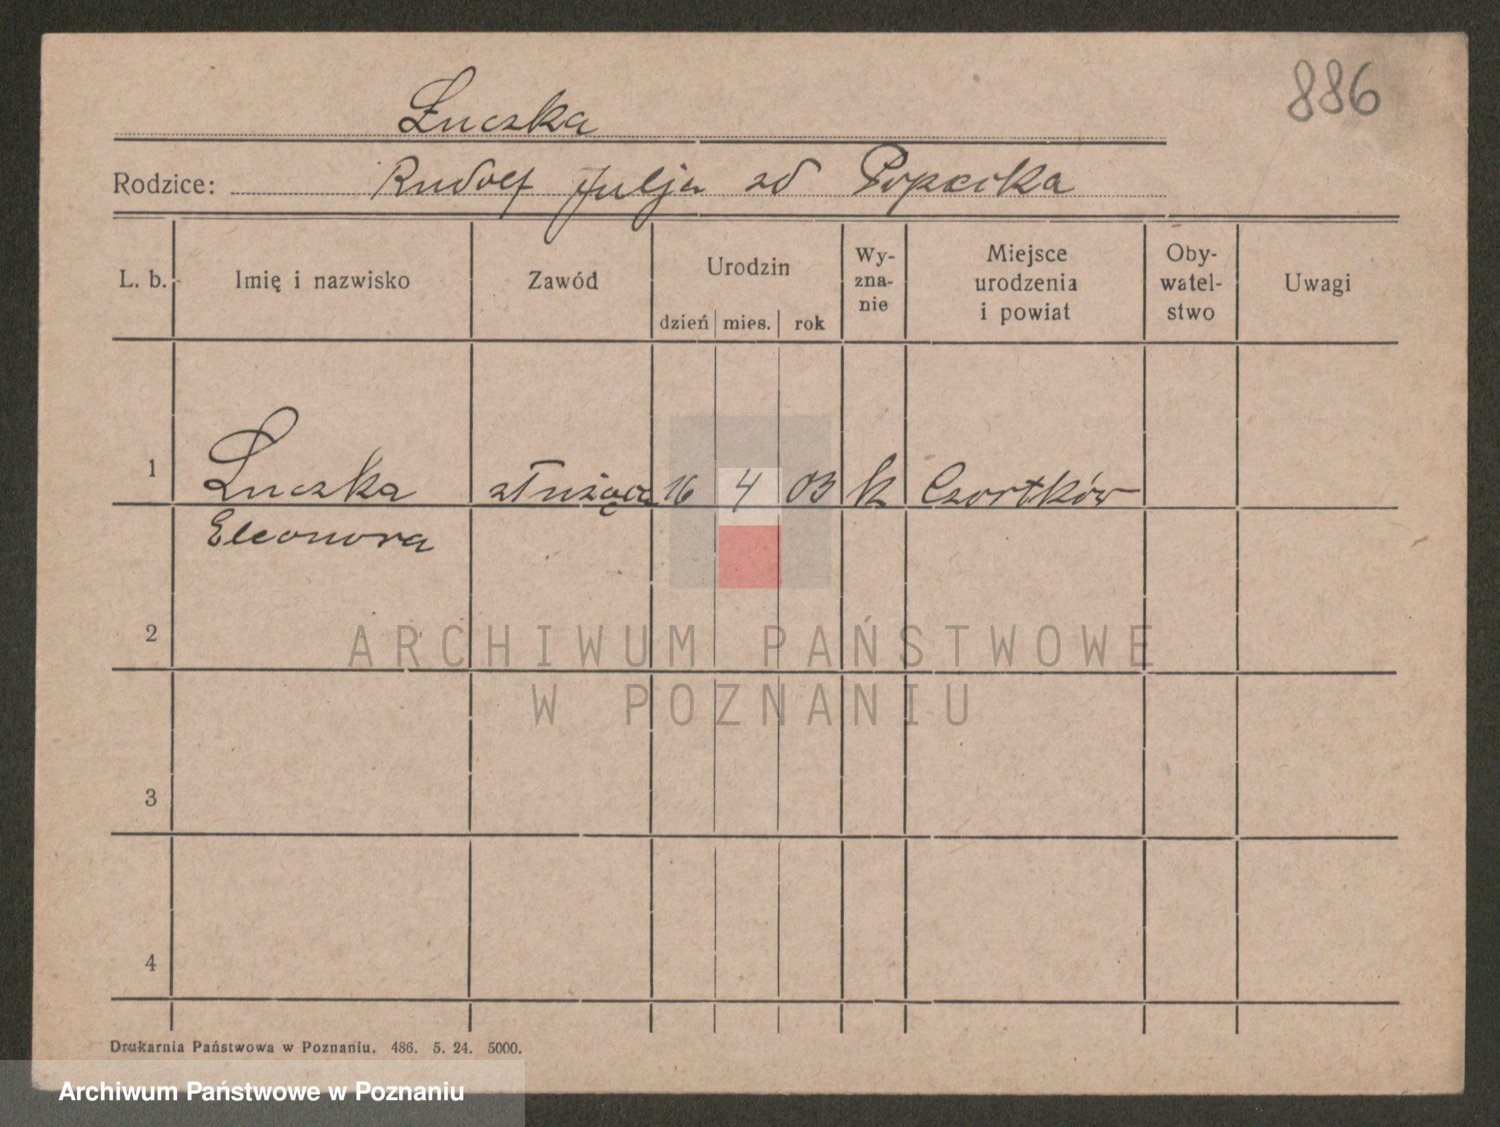 886
Łuczka
Rodzice: Rudolf Julja zd
L. b. Imię i nazwisko Zawód Urodzin dzień mies. rok Wy-zna-nie Miejsce urodzenia i powiat Oby-watel-stwo Uwagi
1 Łuczka służąca 16 4 03 k Czortków
Eleonora
2
ARCHIWUM PAŃSTWOWE
W POZNANIU
3
4
Drukarnia Państwowa w Poznaniu. 486. 5. 24. 5000.
Archiwum Państwowe w Poznaniu